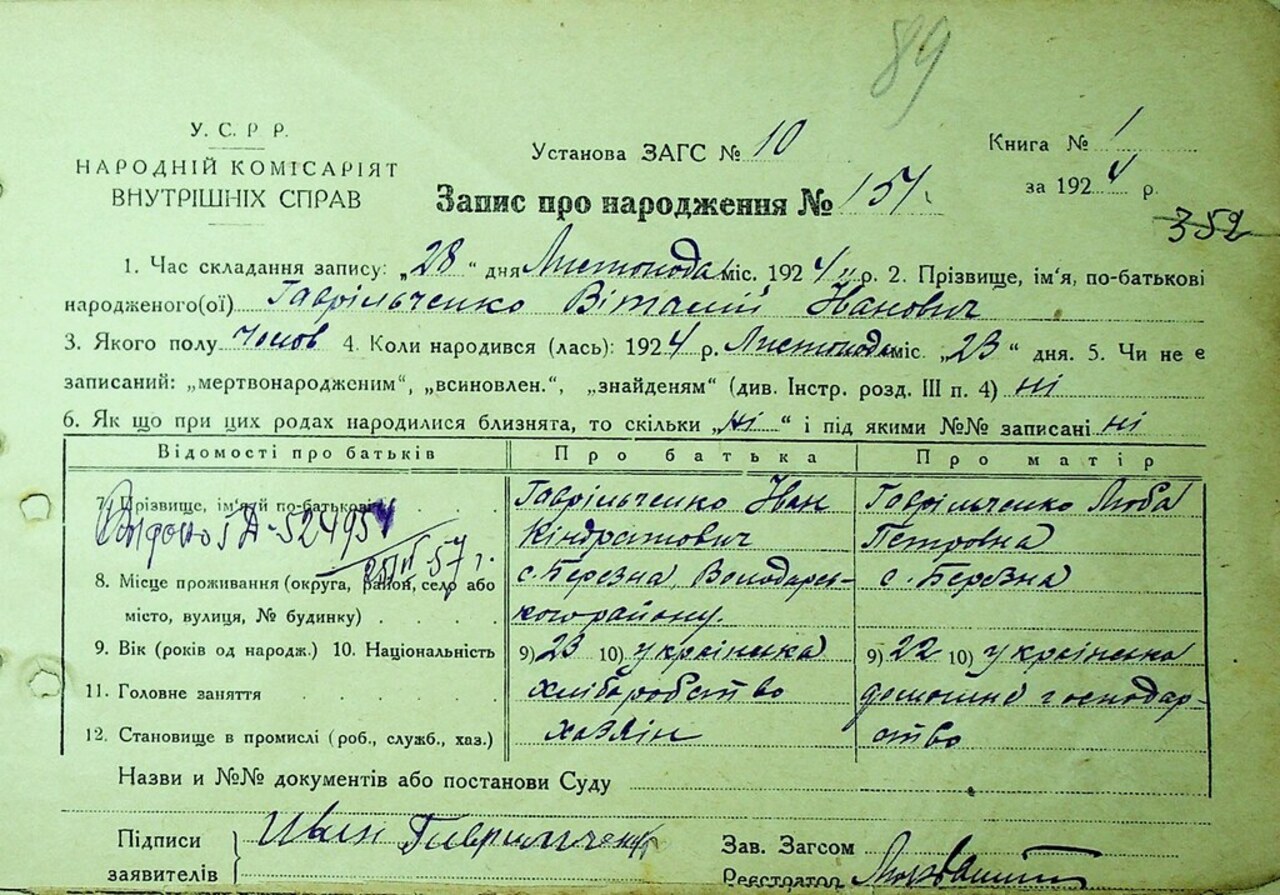 89
У. С. Р. Р.
НАРОДНІЙ КОМІСАРІЯТ
ВНУТРІШНІХ СПРАВ
Установа ЗАГС № 10
Книга № 1
за 1924 р.
Запис про народження № 151
352
1. Час складання запису: „28“ дня Листопада міс. 1924 р. 2. Прізвище, ім'я, по-батькові
народженого(ої) Гаврільченко Віталій Іванович
3. Якого полу Чолов 4. Коли народився (лась): 1924 р. Листопада міс. „23“ дня. 5. Чи не є
записаний: „мертвонародженим“, „всиновлен.“, „знайденям“ (див. Інстр. розд. III п. 4) ні
6. Як що при цих родах народилися близнята, то скільки „ні“ і під якими №№ записані ні
Відомості про батьків Про батька Про матір
7. Прізвище, ім'я й по-батькові Гаврільченко Іван Гаврільченко Люба
Кіндратович Петровна
524954
57 г.
8. Місце проживання (округа, район, село або с. Березна, Володарсь- с. Березна
місто, вулиця, № будинку) кого району.
9. Вік (років од народж.) 10. Національність 9) 23 10) українська 9) 22 10) українська
11. Головне заняття хліборобство домашнє господар-
12. Становище в промислі (роб., служб., хаз.) хазяїн ство
Назви и №№ документів або постанови Суду
Підписи Иван Гаврильченко
заявителів
Зав. Загсом
Реєстратор